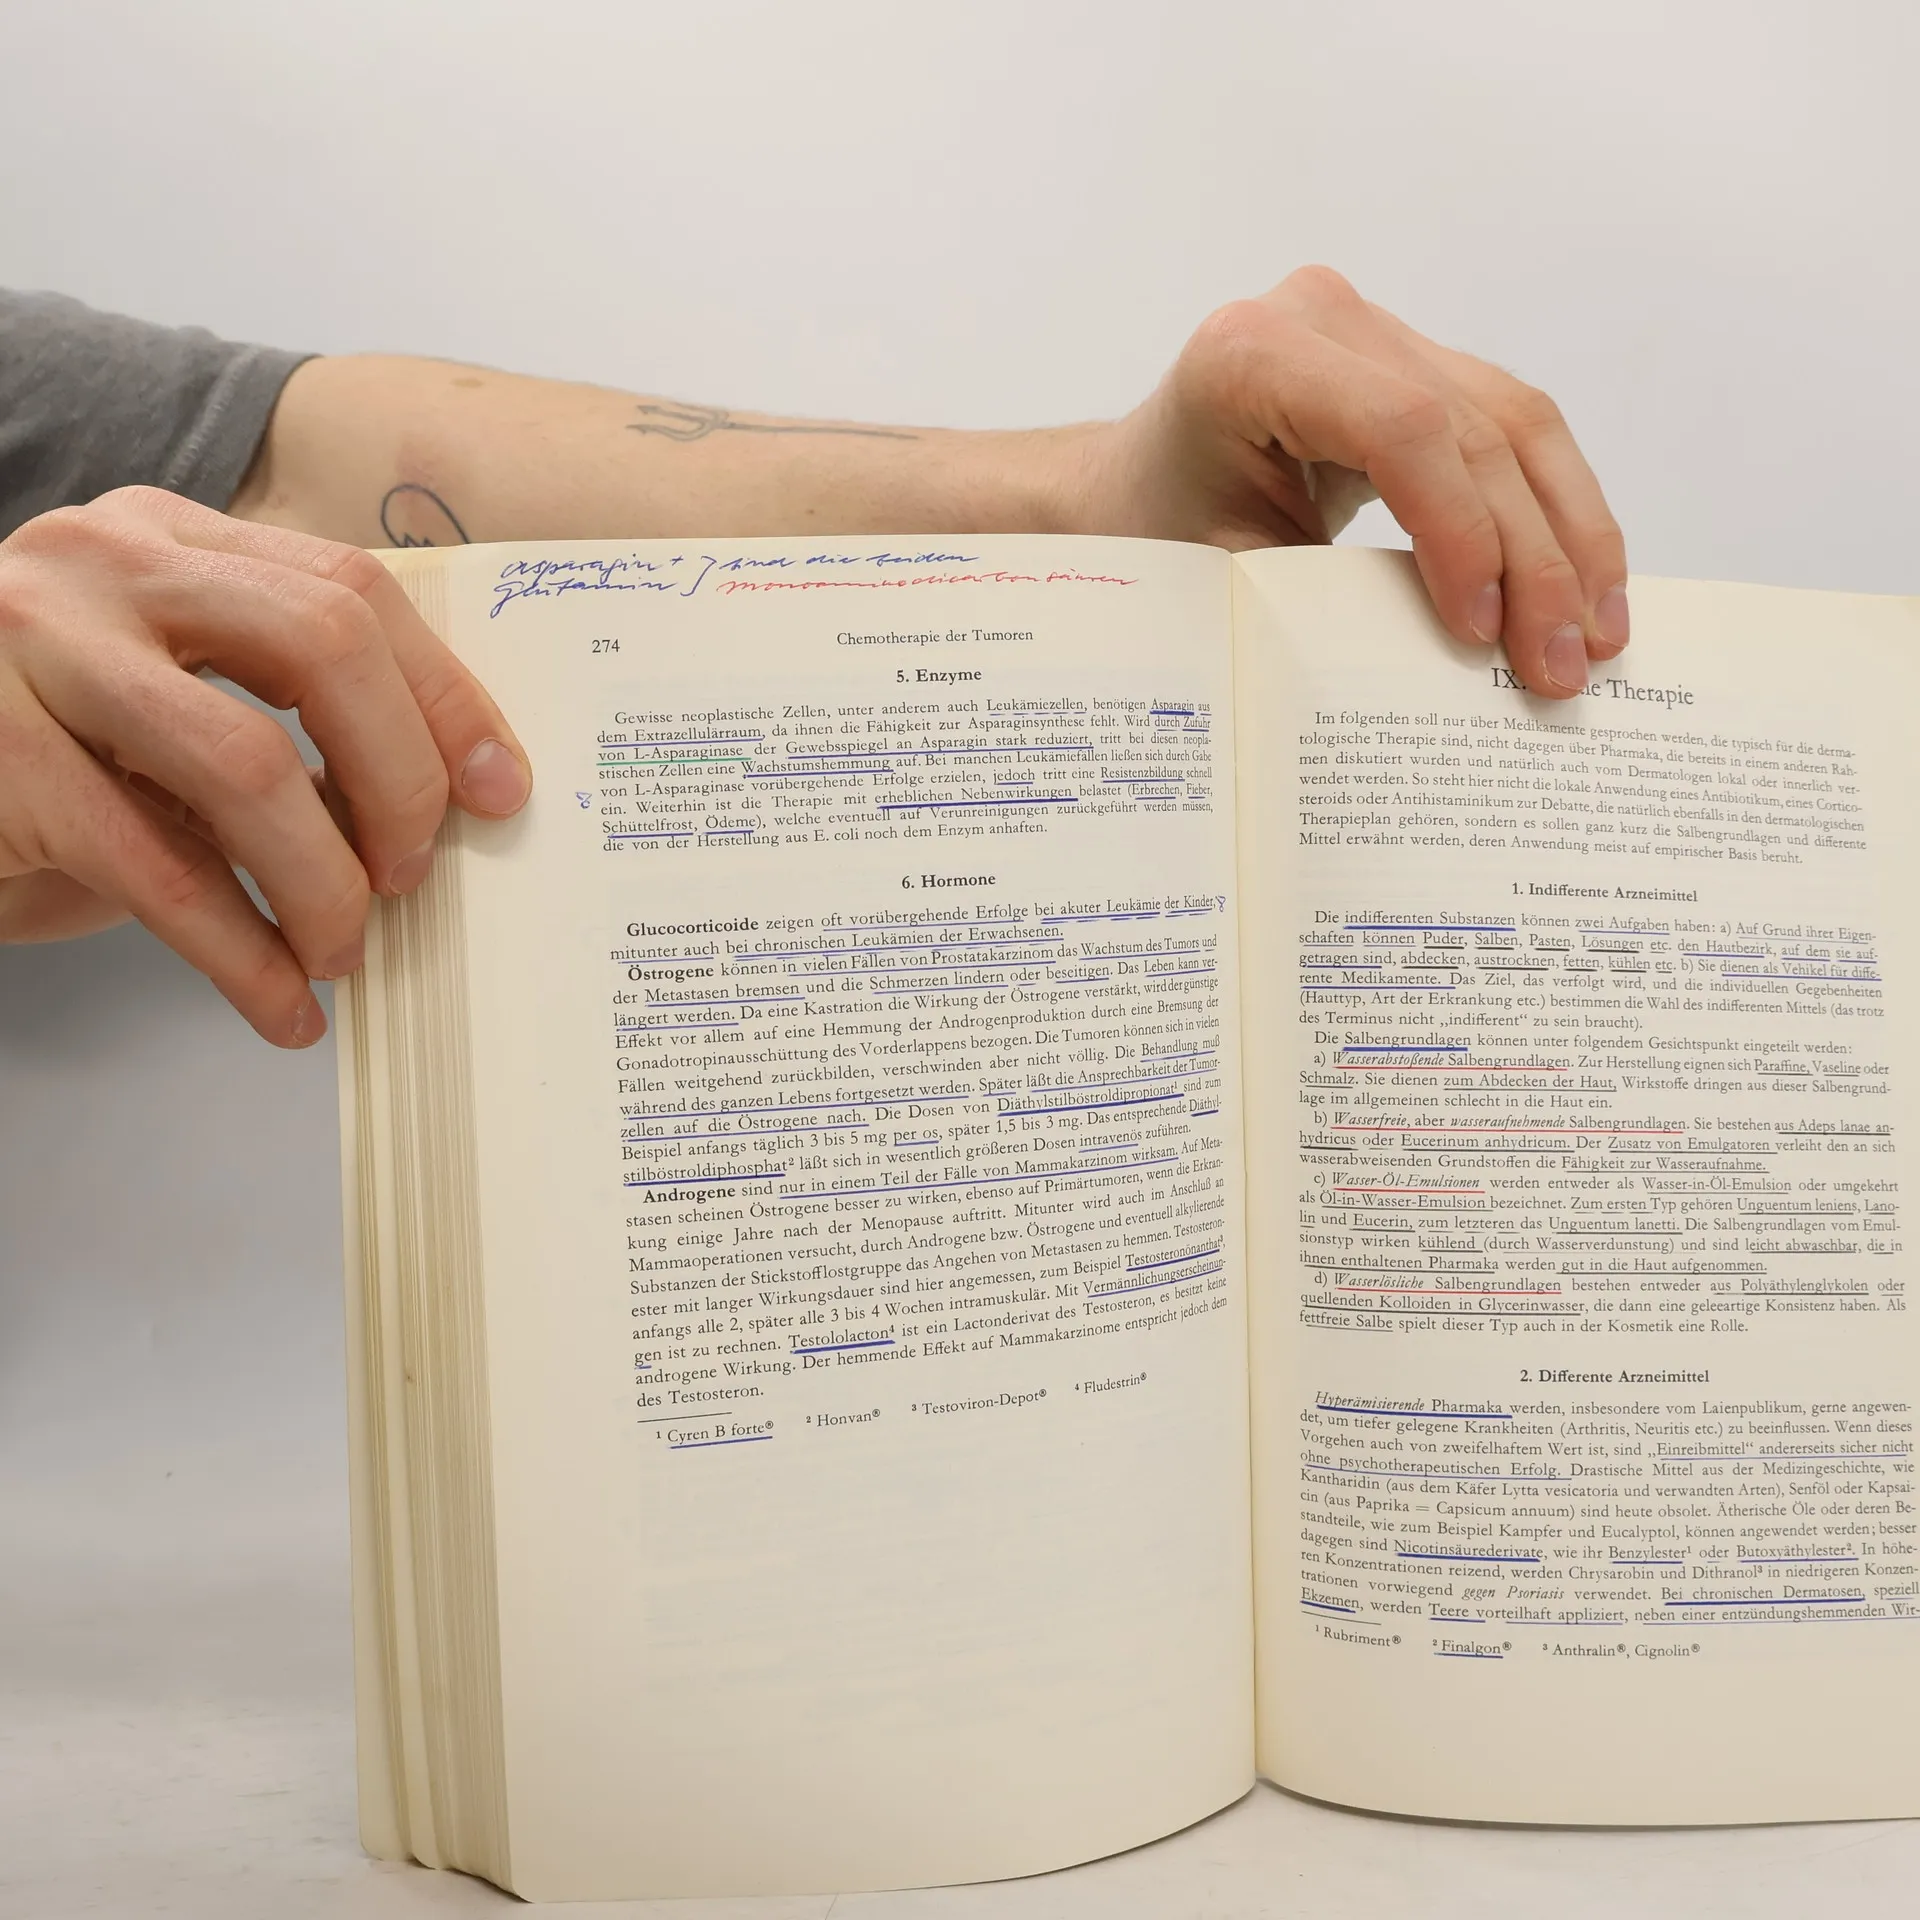 asparagin + } sind die beiden
glutamin } monoaminodicarbonsäuren
274
Chemotherapie der Tumoren
5. Enzyme
Gewisse neoplastische Zellen, unter anderem auch Leukämiezellen, benötigen Asparagin aus
dem Extrazellulärraum, da ihnen die Fähigkeit zur Asparaginsynthese fehlt. Wird durch Zufuhr
von L-Asparaginase der Gewebsspiegel an Asparagin stark reduziert, tritt bei diesen neopla-
stischen Zellen eine Wachstumshemmung auf. Bei manchen Leukämiefällen ließen sich durch Gabe
von L-Asparaginase vorübergehende Erfolge erzielen, jedoch tritt eine Resistenzbildung schnell
ein. Weiterhin ist die Therapie mit erheblichen Nebenwirkungen belastet (Erbrechen, Fieber,
Schüttelfrost, Ödeme), welche eventuell auf Verunreinigungen zurückgeführt werden müssen,
die von der Herstellung aus E. coli noch dem Enzym anhaften.
6. Hormone
Glucocorticoide zeigen oft vorübergehende Erfolge bei akuter Leukämie der Kinder,
mitunter auch bei chronischen Leukämien der Erwachsenen.
Östrogene können in vielen Fällen von Prostatakarzinom das Wachstum des Tumors und
der Metastasen bremsen und die Schmerzen lindern oder beseitigen. Das Leben kann ver-
längert werden. Da eine Kastration die Wirkung der Östrogene verstärkt, wird der günstige
Effekt vor allem auf eine Hemmung der Androgenproduktion durch eine Bremsung der
Gonadotropinausschüttung des Vorderlappens bezogen. Die Tumoren können sich in vielen
Fällen weitgehend zurückbilden, verschwinden aber nicht völlig. Die Behandlung muß
während des ganzen Lebens fortgesetzt werden. Später läßt die Ansprechbarkeit der Tumor-
zellen auf die Östrogene nach. Die Dosen von Diäthylstilböstroldipropionat¹ sind zum
Beispiel anfangs täglich 3 bis 5 mg per os, später 1,5 bis 3 mg. Das entsprechende Diäthyl-
stilböstroldiphosphat² läßt sich in wesentlich größeren Dosen intravenös zuführen.
Androgene sind nur in einem Teil der Fälle von Mammakarzinom wirksam. Auf Meta-
stasen scheinen Östrogene besser zu wirken, ebenso auf Primärtumoren, wenn die Erkran-
kung einige Jahre nach der Menopause auftritt. Mitunter wird auch im Anschluß an
Mammaoperationen versucht, durch Androgene bzw. Östrogene und eventuell alkylierende
Substanzen der Stickstofflostgruppe das Angehen von Metastasen zu hemmen. Testosteron-
ester mit langer Wirkungsdauer sind hier angemessen, zum Beispiel Testosteronönanthat³,
anfangs alle 2, später alle 3 bis 4 Wochen intramuskulär. Mit Vermännlichungserscheinun-
gen ist zu rechnen. Testololacton⁴ ist ein Lactonderivat des Testosteron, es besitzt keine
androgene Wirkung. Der hemmende Effekt auf Mammakarzinome entspricht jedoch dem
des Testosteron.
¹ Cyren B forte® ² Honvan® ³ Testoviron-Depot® ⁴ Fludestrin®
IX. Therapie
Im folgenden soll nur über Medikamente gesprochen werden, die typisch für die derma-
tologische Therapie sind, nicht dagegen über Pharmaka, die bereits in einem anderen Rah-
men diskutiert wurden und natürlich auch vom Dermatologen lokal oder innerlich ver-
wendet werden. So steht hier nicht die lokale Anwendung eines Antibiotikum, eines Cortico-
steroids oder Antihistaminikum zur Debatte, die natürlich ebenfalls in den dermatologischen
Therapieplan gehören, sondern es sollen ganz kurz die Salbengrundlagen und differente
Mittel erwähnt werden, deren Anwendung meist auf empirischer Basis beruht.
1. Indifferente Arzneimittel
Die indifferenten Substanzen können zwei Aufgaben haben: a) Auf Grund ihrer Eigen-
schaften können Puder, Salben, Pasten, Lösungen etc. den Hautbezirk, auf dem sie auf-
getragen sind, abdecken, austrocknen, fetten, kühlen etc. b) Sie dienen als Vehikel für diffe-
rente Medikamente. Das Ziel, das verfolgt wird, und die individuellen Gegebenheiten
(Hauttyp, Art der Erkrankung etc.) bestimmen die Wahl des indifferenten Mittels (das trotz
des Terminus nicht „indifferent“ zu sein braucht).
Die Salbengrundlagen können unter folgendem Gesichtspunkt eingeteilt werden:
a) Wasserabstoßende Salbengrundlagen. Zur Herstellung eignen sich Paraffine, Vaseline oder
Schmalz. Sie dienen zum Abdecken der Haut, Wirkstoffe dringen aus dieser Salbengrund-
lage im allgemeinen schlecht in die Haut ein.
b) Wasserfreie, aber wasseraufnehmende Salbengrundlagen. Sie bestehen aus Adeps lanae an-
hydricus oder Eucerinum anhydricum. Der Zusatz von Emulgatoren verleiht den an sich
wasserabweisenden Grundstoffen die Fähigkeit zur Wasseraufnahme.
c) Wasser-Öl-Emulsionen werden entweder als Wasser-in-Öl-Emulsion oder umgekehrt
als Öl-in-Wasser-Emulsion bezeichnet. Zum ersten Typ gehören Unguentum leniens, Lano-
lin und Eucerin, zum letzteren das Unguentum lanetti. Die Salbengrundlagen vom Emul-
sionstyp wirken kühlend (durch Wasserverdunstung) und sind leicht abwaschbar, die in
ihnen enthaltenen Pharmaka werden gut in die Haut aufgenommen.
d) Wasserlösliche Salbengrundlagen bestehen entweder aus Polyäthylenglykolen oder
quellenden Kolloiden in Glycerinwasser, die dann eine geleeartige Konsistenz haben. Als
fettfreie Salbe spielt dieser Typ auch in der Kosmetik eine Rolle.
2. Differente Arzneimittel
Hyperämisierende Pharmaka werden, insbesondere vom Laienpublikum, gerne angewen-
det, um tiefer gelegene Krankheiten (Arthritis, Neuritis etc.) zu beeinflussen. Wenn dieses
Vorgehen auch von zweifelhaftem Wert ist, sind „Einreibmittel“ andererseits sicher nicht
ohne psychotherapeutischen Erfolg. Drastische Mittel aus der Medizingeschichte, wie
Kantharidin (aus dem Käfer Lytta vesicatoria und verwandten Arten), Senföl oder Kapsai-
cin (aus Paprika = Capsicum annuum) sind heute obsolet. Ätherische Öle oder deren Be-
standteile, wie zum Beispiel Kampfer und Eucalyptol, können angewendet werden; besser
dagegen sind Nicotinsäurederivate, wie ihr Benzylester¹ oder Butoxyäthylester². In höhe-
ren Konzentrationen reizend, werden Chrysarobin und Dithranol³ in niedrigeren Konzen-
trationen vorwiegend gegen Psoriasis verwendet. Bei chronischen Dermatosen, speziell
Ekzemen, werden Teere vorteilhaft appliziert, neben einer entzündungshemmenden Wir-
¹ Rubriment® ² Finalgon® ³ Anthralin®, Cignolin®